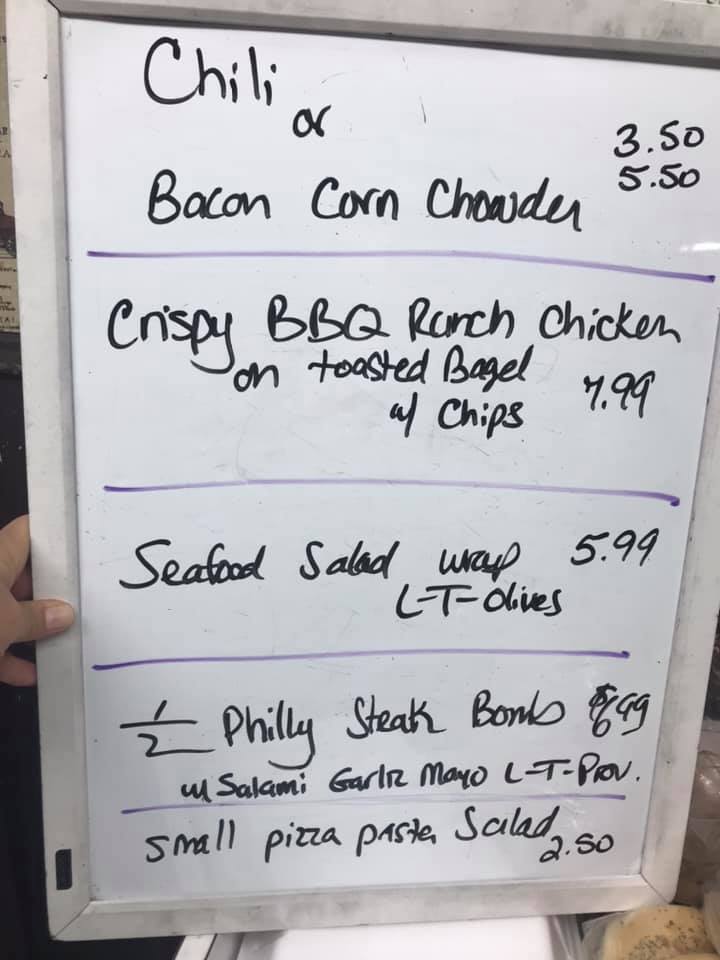 Chili
or
3.50
5.50
Bacon Corn Chowder
Crispy BBQ Ranch Chicken
on toasted Bagel
w/ Chips 7.99
Seafood Salad wrap 5.99
L-T-Olives
1/2 Philly Steak Bomb $6.99
w/ Salami Garlic Mayo L-T-Prov.
small pizza pasta Salad
2.50